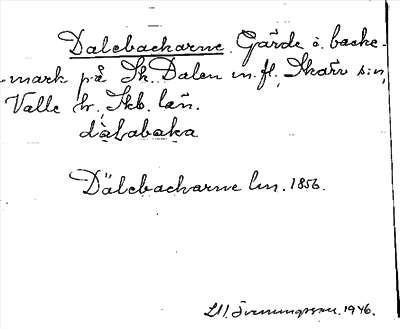 Dalebackarne. Gärde o. backe-
mark på St. Dalen m. fl., Skärv s:n,
Valle hr, Skb. län.
dàlabaka
Dälebackarne lm. 1856.
1946.